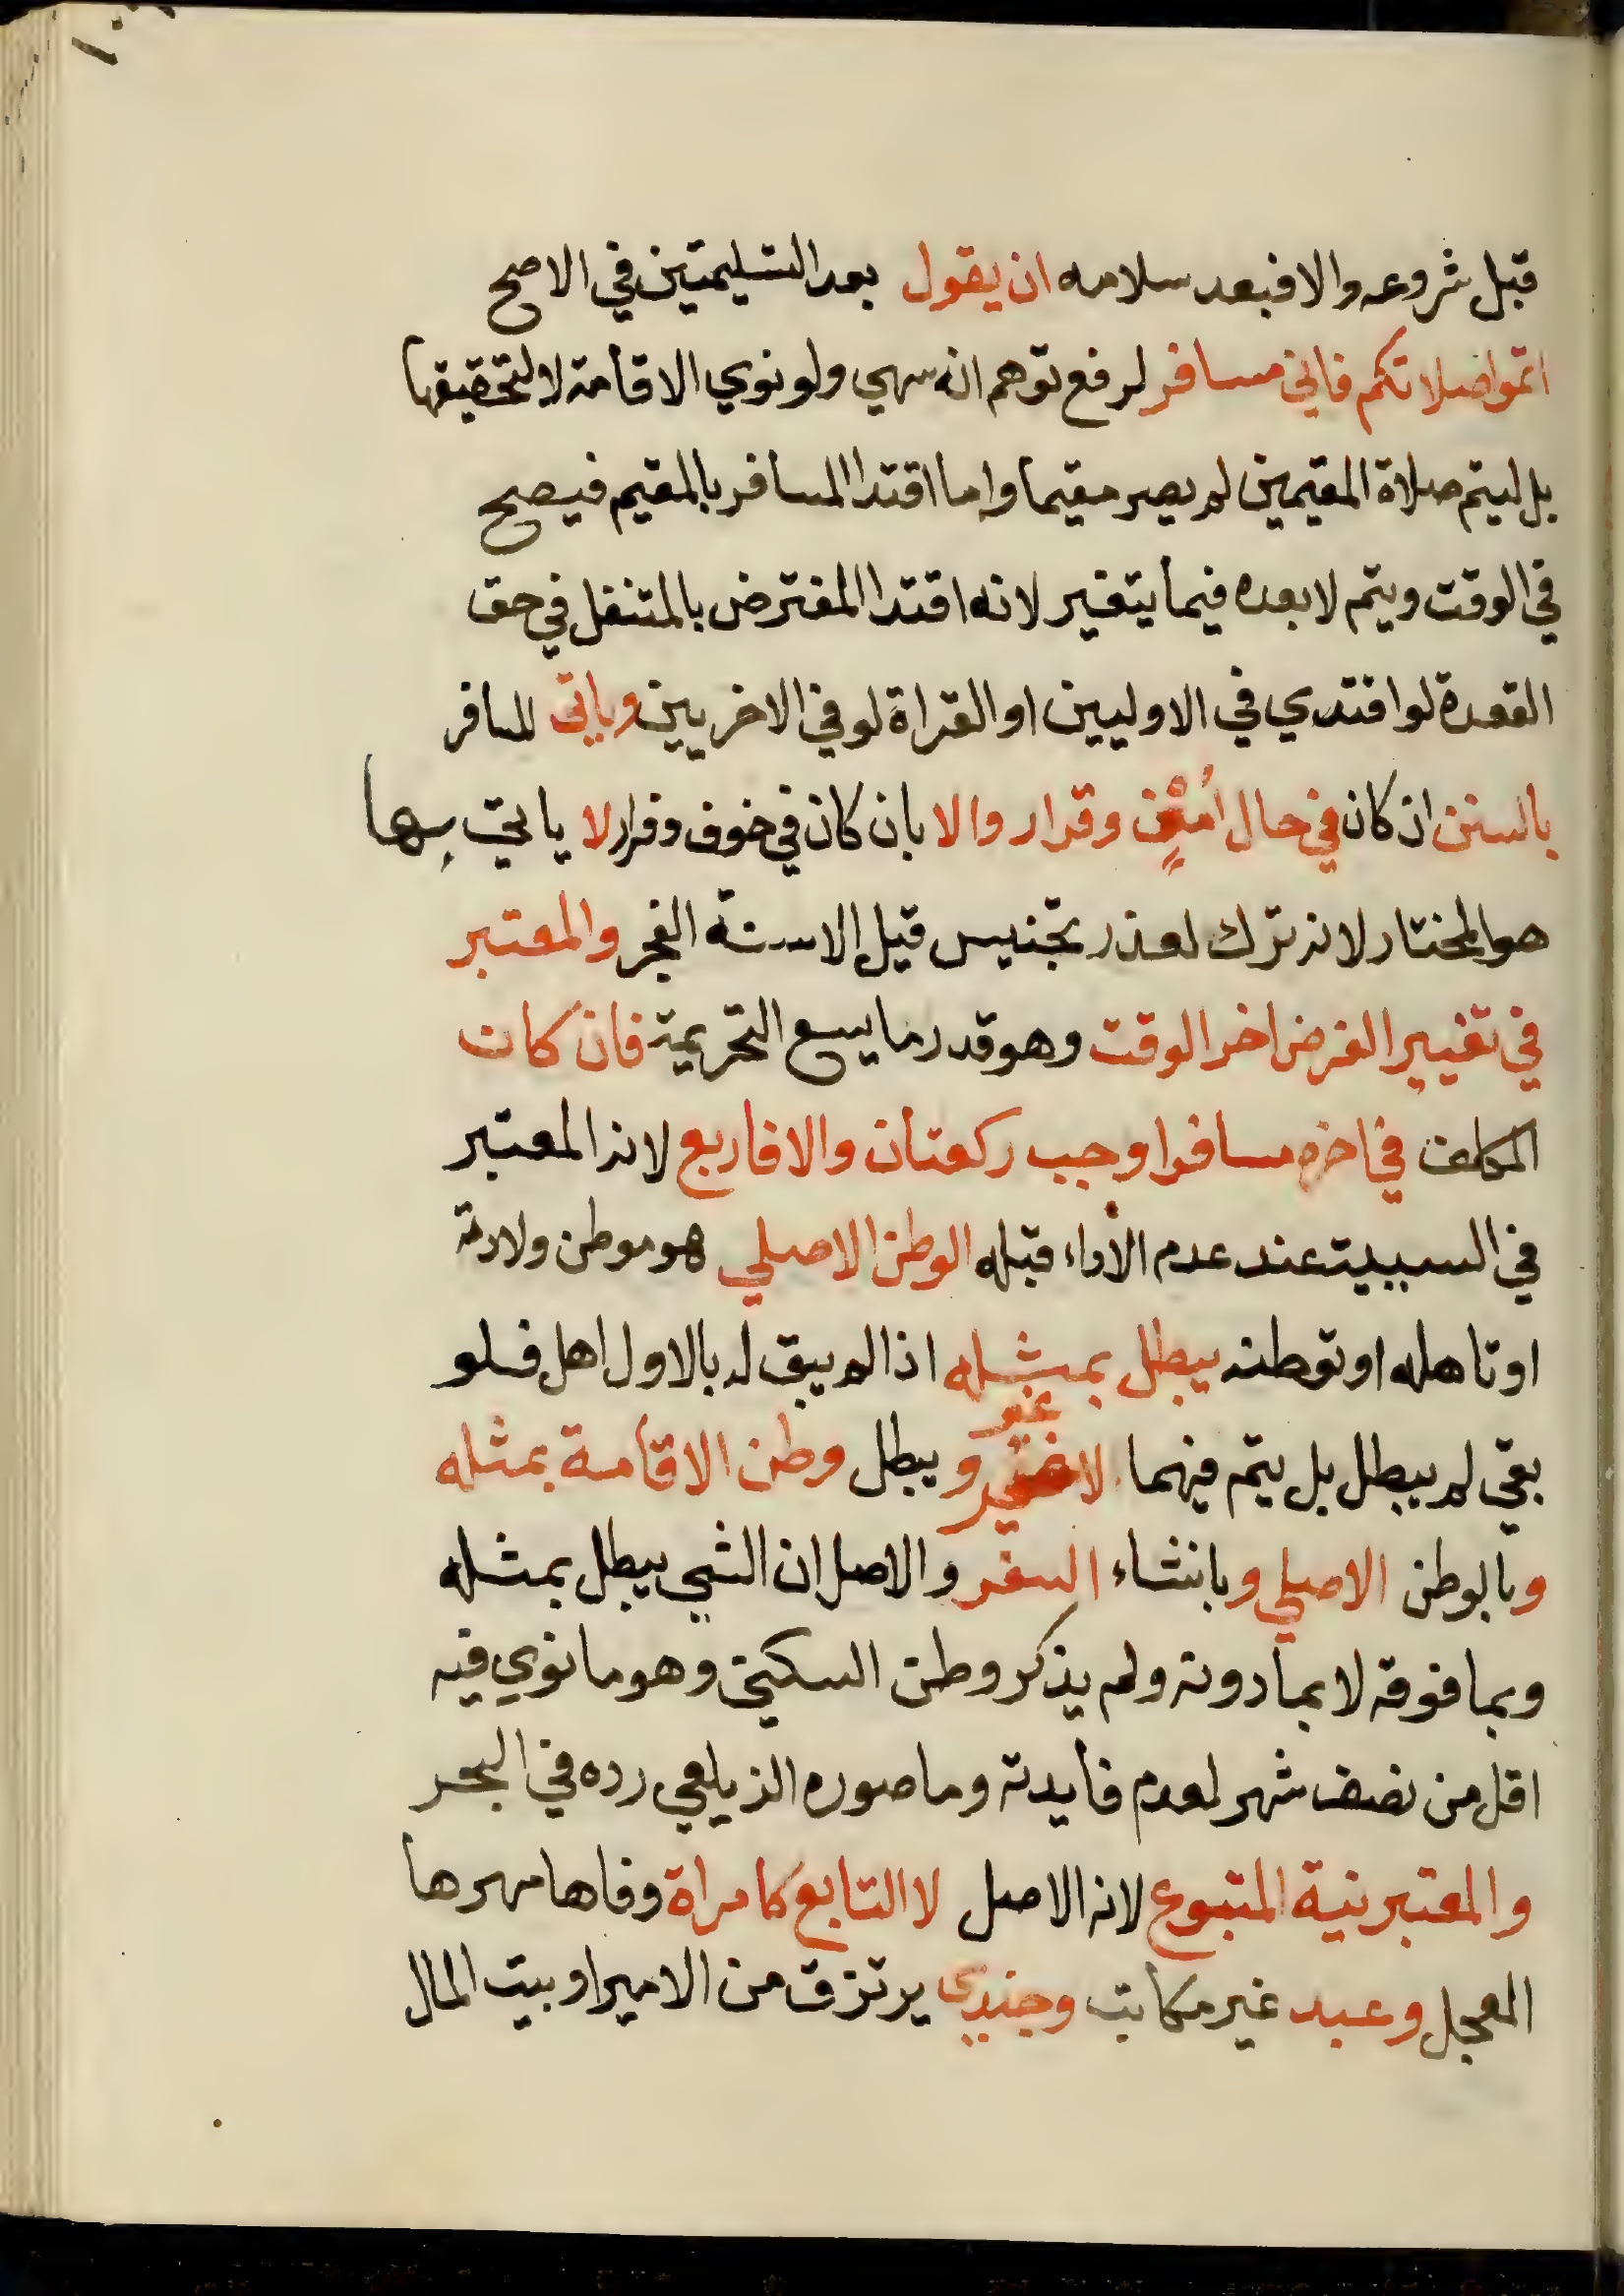 قبل شروعه والا فبعد سلامه ان يقول بعد التسليمتين في الاصح
اتموا صلاتكم فاني مسافر لرفع توهم انه سهي ولو نوي الاقامة لا لتحقيقها
بل ليتم صلاة المقيمين لم يصر مقيما واما اقتدا المسافر بالمقيم فيصح
في الوقت ويتم لا بعده فيما يتغير لانه اقتدا المفترض بالمتنفل في حق
القعدة لو اقتدي في الاوليين او القراة لو في الاخريين وياتي المسافر
بالسنن ان كان في حال امن وقرار والا بان كان في خوف وفرار لا ياتي بها
هو المختار لانه ترك لعذر تجنيس قيل الا سنة الفجر والمعتبر
في تغيير الفرض اخر الوقت وهو قدر ما يسع التحريمة فان كان
المكلف في اخره مسافرا وجب ركعتان والا فاربع لانه المعتبر
في السببية عند عدم الأداء قبله الوطن الاصلي هو موطن ولادته
او تاهله او توطنه يبطل بمثله اذا لم يبق له بالاول اهل فلو
بقي لم يبطل بل يتم فيهما لا غير ويبطل وطن الاقامة بمثله
وبالوطن الاصلي وبانشاء السفر والاصل ان الشي يبطل بمثله
وبما فوقه لا بما دونه ولم يذكر وطن السكني وهو ما نوي فيه
اقل من نصف شهر لعدم فايدته وما صوره الزيلعي رده في البحر
والمعتبر نية المتبوع لانه الاصل لا التابع كامراة وفاها مهرها
المعجل وعبد غير مكاتب وجندي يرتزق من الامير او بيت المال